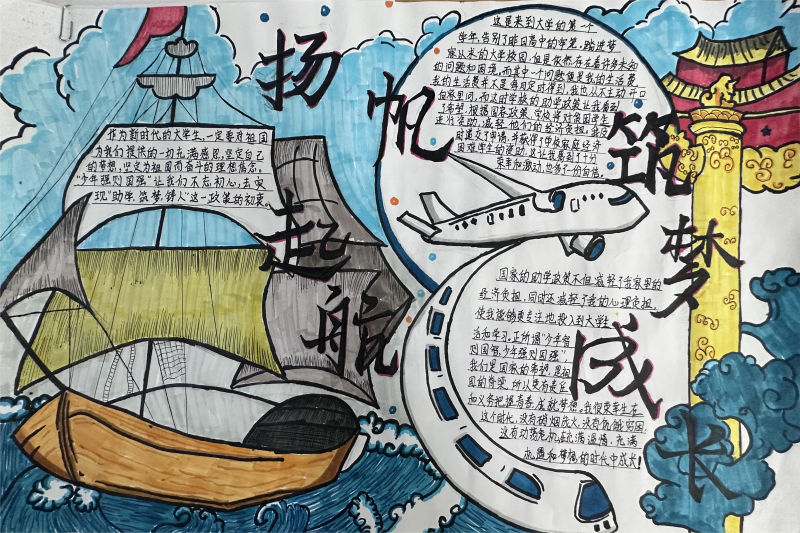 扬帆起航
筑梦成长
作为新时代的大学生,一定要对祖国
为我们提供的一切充满感恩,坚定自己
的梦想,坚定为祖国而奋斗的理想信念,
"少年强则国强"让我们不忘初心,去实
现"助学、筑梦、铸人"这一政策的初衷。
这是来到大学的第一个
学年,告别了昨日高中的学笔,踏进梦
寐以来的大学校园,但是依然存在着许多未知
的问题和困境,而其中一个问题便是我的生活费
我的生活费并不是每月定时得到,我也从不主动开口
向家里问,而这时学校的助学政策让我看到
了希望,根据国家政策,学校将对贫困学生
进行资助,减轻他们的经济负担,我及
时递交了申请,并获得了学校家庭经济
困难学生的资助,这让我感到了十分
荣幸和激动,也多了一份自信。
国家的助学政策不但减轻了我家里的
经济负担,同时还减轻了我的心理负担,
使我能够更专注地投入到大学生
活和学习,正所谓"少年智
则国智,少年强则国强"
我们是国家的希望,是祖
国的脊梁,所以更有责任
和义务把握青春,成就梦想。我很荣幸生在
这个时代,没有硝烟战火,没有饥饿穷困
没有动荡危机,在充满温情、充满
机遇和幸福的时代中成长!